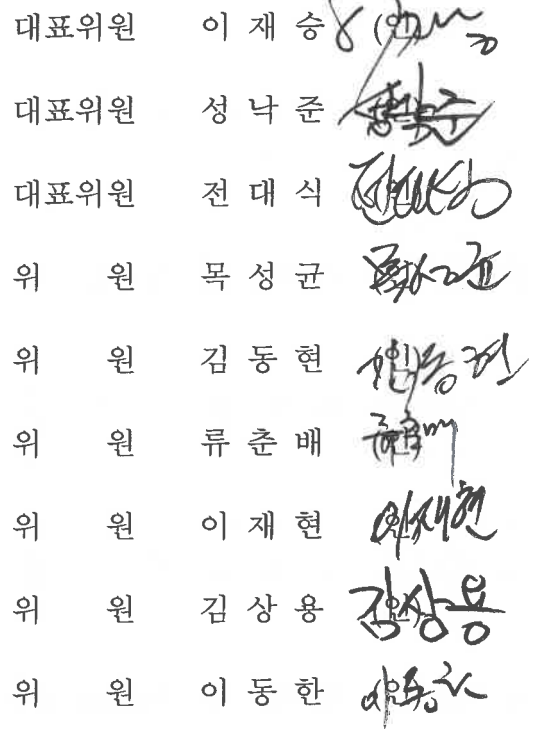 대표위원 이 재 승 (인)
대표위원 성 낙 준
대표위원 전 대 식
위 원 목 성 균
위 원 김 동 현
위 원 류 춘 배
위 원 이 재 현 이재현
위 원 김 상 용 김상용
위 원 이 동 한